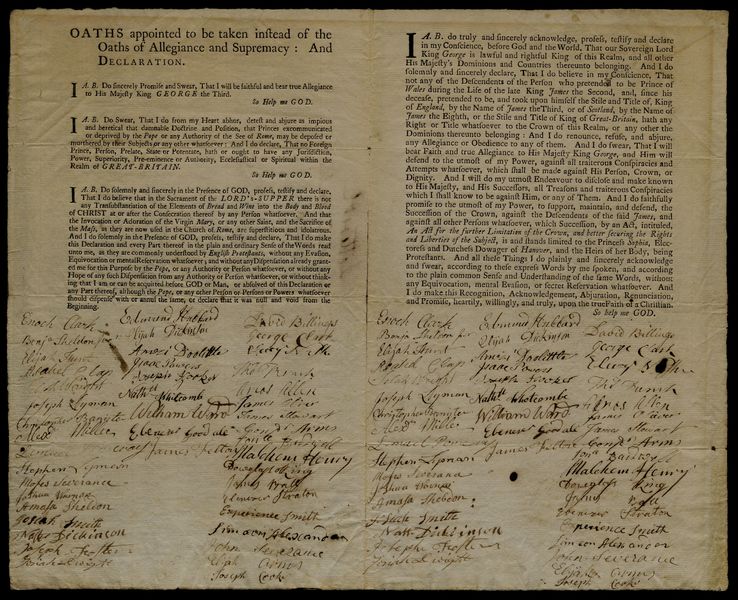 OATHS appointed to be taken instead of the
Oaths of Allegiance and Supremacy: And
DECLARATION.
I A. B. Do sincerely Promise and Swear, That I will be faithful and bear true Allegiance
to His Majesty King GEORGE the Third.
So Help me GOD.
I A. B. Do Swear, That I do from my Heart abhor, detest and abjure as impious
and heretical that damnable Doctrine and Position, that Princes excommunicated
or deprived by the Pope or any Authority of the See of Rome, may be deposed or
murthered by their Subjects or any other whatsoever: And I do declare, That no Foreign
Prince, Person, Prelate, State or Potentate, hath or ought to have any Jurisdiction,
Power, Superiority, Pre-eminence or Authority, Ecclesiastical or Spiritual within the
Realm of GREAT-BRITAIN.
So Help me GOD.
I A. B. Do solemnly and sincerely in the Presence of GOD, profess, testify and declare,
That I do believe that in the Sacrament of the LORD's-SUPPER there is not
any Transubstantiation of the Elements of Bread and Wine into the Body and Blood
of CHRIST at or after the Consecration thereof by any Person whatsoever. And that
the Invocation or Adoration of the Virgin Mary, or any other Saint, and the Sacrifice of
the Mass, as they are now used in the Church of Rome, are superstitious and idolatrous.
And I do solemnly in the Presence of GOD, profess, testify and declare, That I do make
this Declaration and every Part thereof in the plain and ordinary Sense of the Words read
unto me, as they are commonly understood by English Protestants, without any Evasion,
Equivocation or mental Reservation whatsoever; and without any Dispensation already grant-
ed me for this Purpose by the Pope, or any Authority or Person whatsoever, or without any
Hope of any such Dispensation from any Authority or Person whatsoever, or without think-
ing that I am or can be acquitted before GOD or Man, or absolved of this Declaration or
any Part thereof, although the Pope, or any other Person or Persons or Powers whatsoever
should dispense with or annul the same, or declare that it was null and void from the
Beginning.
Enoch Clark Edmund Hubbard David Billings
Benja Sheldon jur Elijah Dickinson George Clark
Elijah Hunt Amasi Doolittle
Clap Isaac Powers Thos French
Wright Joseph Hooker Amos Allen
Joseph Lyman Nathll Whitcomb
Christopher Banister William Ward James Stewart
Alexr Miller Ebenezr Goodale Arms
James Felton
Stephen Lyman Malchem Henry
Moses Severana Dowglas King
Joshua Warner
Amasa Sheldon Ebenezer Straton
Josiah Smith Experience Smith
Nathn Dickinson Simeon Alexander
Joseph Foster John Severance
Josiah Dwight Elijah Arms
Joseph Cook
I A. B. do truly and sincerely acknowledge, profess, testify and declare
in my Conscience, before God and the World, That our Sovereign Lord
King George is lawful and rightful King of this Realm, and all other
His Majesty's Dominions and Countries thereunto belonging. And I do
solemnly and sincerely declare, That I do believe in my Conscience, That
not any of the Descendents of the Person who pretended to be Prince of
Wales during the Life of the late King James the Second, and, since his
decease, pretended to be, and took upon himself the Stile and Title of, King
of England, by the Name of James the Third, or of Scotland, by the Name of
James the Eighth, or the Stile and Title of King of Great-Britain, hath any
Right or Title whatsoever to the Crown of this Realm, or any other the
Dominions thereunto belonging: And I do renounce, refuse, and abjure,
any Allegiance or Obedience to any of them. And I do swear, That I will
bear Faith and true Allegiance to His Majesty King George, and Him will
defend to the utmost of my Power, against all traiterous Conspiracies and
Attempts whatsoever, which shall be made against His Person, Crown, or
Dignity. And I will do my utmost Endeavour to disclose and make known
to His Majesty, and His Successors, all Treasons and traiterous Conspiracies
which I shall know to be against Him, or any of Them. And I do faithfully
promise to the utmost of my Power, to support, maintain, and defend, the
Succession of the Crown, against the Descendents of the said James, and
against all other Persons whatsoever, which Succession, by an Act, intituled,
An Act for the further Limitation of the Crown, and better securing the Rights
and Liberties of the Subject, is and stands limited to the Princess Sophia, Elec-
toress and Dutchess Dowager of Hanover, and the Heirs of her Body, being
Protestants. And all these Things I do plainly and sincerely acknowledge
and swear, according to these express Words by me spoken, and according
to the plain common Sense and Understanding of the same Words, without
any Equivocation, mental Evasion, or secret Reservation whatsoever. And
I do make this Recognition, Acknowledgement, Abjuration, Renunciation,
and Promise, heartily, willingly, and truly, upon the true Faith of a Christian.
So help me GOD.
Enoch Clark Edmund Hubbard David Billings
Benja Sheldon jur Elijah Dickinson George Clark
Elijah Hunt Amasi Doolittle
Clap Isaac Powers
Wright Joseph Hooker Thos French
Joseph Lyman Nathll Whitcomb Amos Allen
Christopher Banister William Ward
Alexr Miller Ebenezr Goodale James Stewart
James Felton Arms
Stephen Lyman Malchem Henry
Moses Severana Dowglas King
Joshua Warner
Amasa Sheldon Ebenezer Straton
Josiah Smith Experience Smith
Nath Dickinson Simeon Alexander
Joseph Foster John Severance
Josiah Dwight Elijah Arms
Joseph Cook